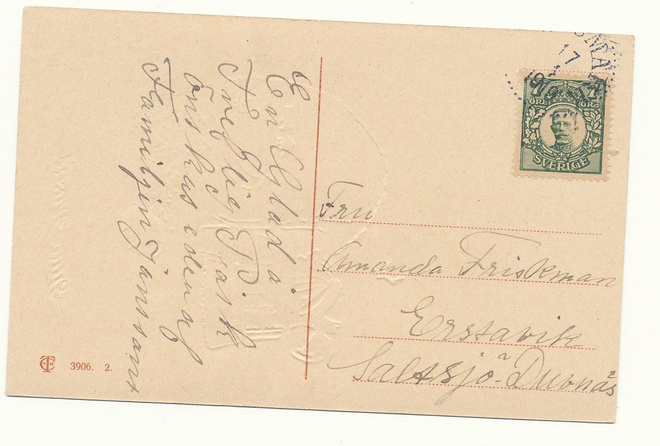 En Glad å
Treflig Påsk
önskas eder af
Familjen Jansson
Fru
Amanda Friskman
Erstavik
Saltsjö-Dufnäs
ÖRE ÖRE
SVERIGE
17
3906. 2.